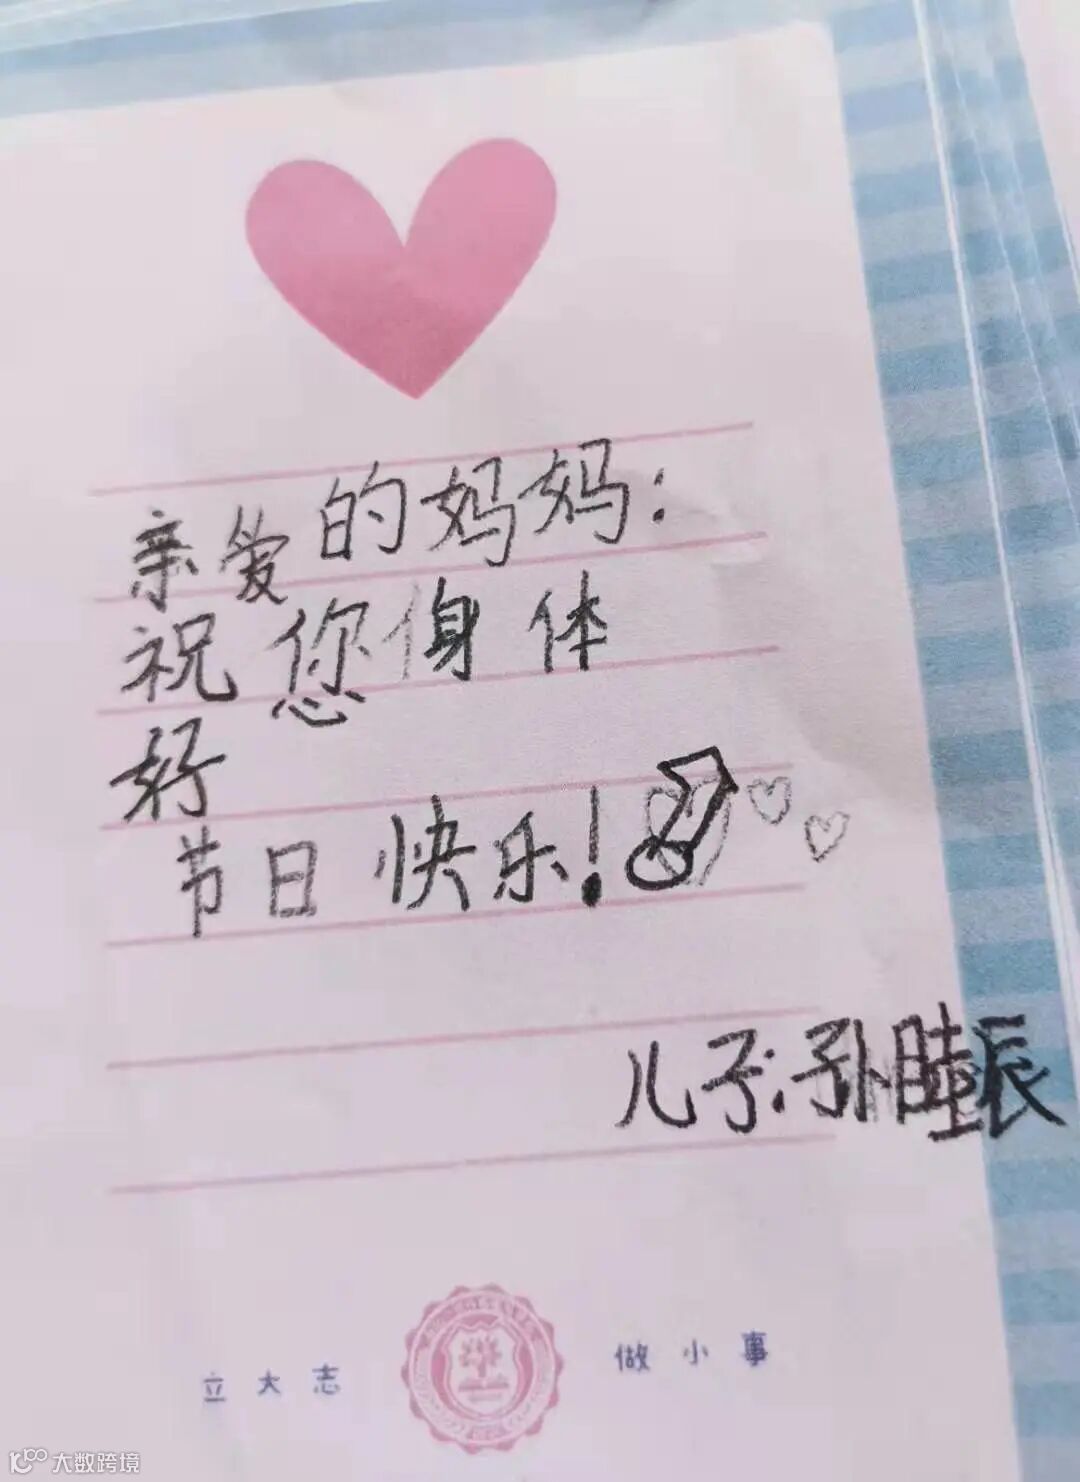 亲爱的妈妈：
祝您身体
好
节日快乐！
儿子：孙睦辰
立大志 做小事
大数跨境